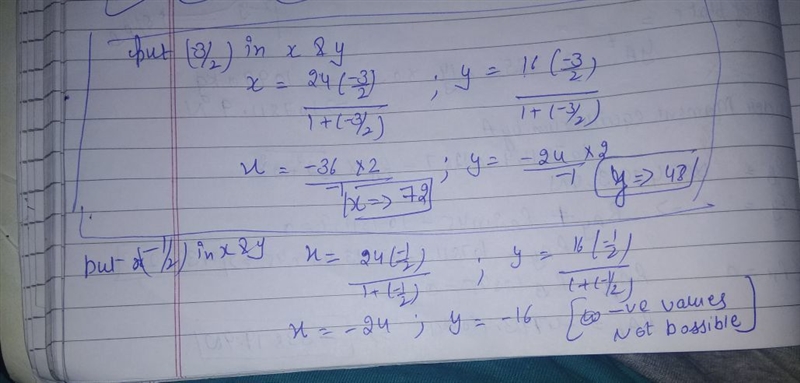 put (-3/2) in x & y
x = 24(-3/2) / 1+(-3/2) ; y = 16(-3/2) / 1+(-3/2)
x = -36 × 2 / -1 ; y = -24 × 2 / -1
x => 72 y => 48
put (-1/2) in x & y x = 24(-1/2) / 1+(-1/2) ; y = 16(-1/2) / 1+(-1/2)
x = -24 ; y = -16 [ -ve values
Not possible ]